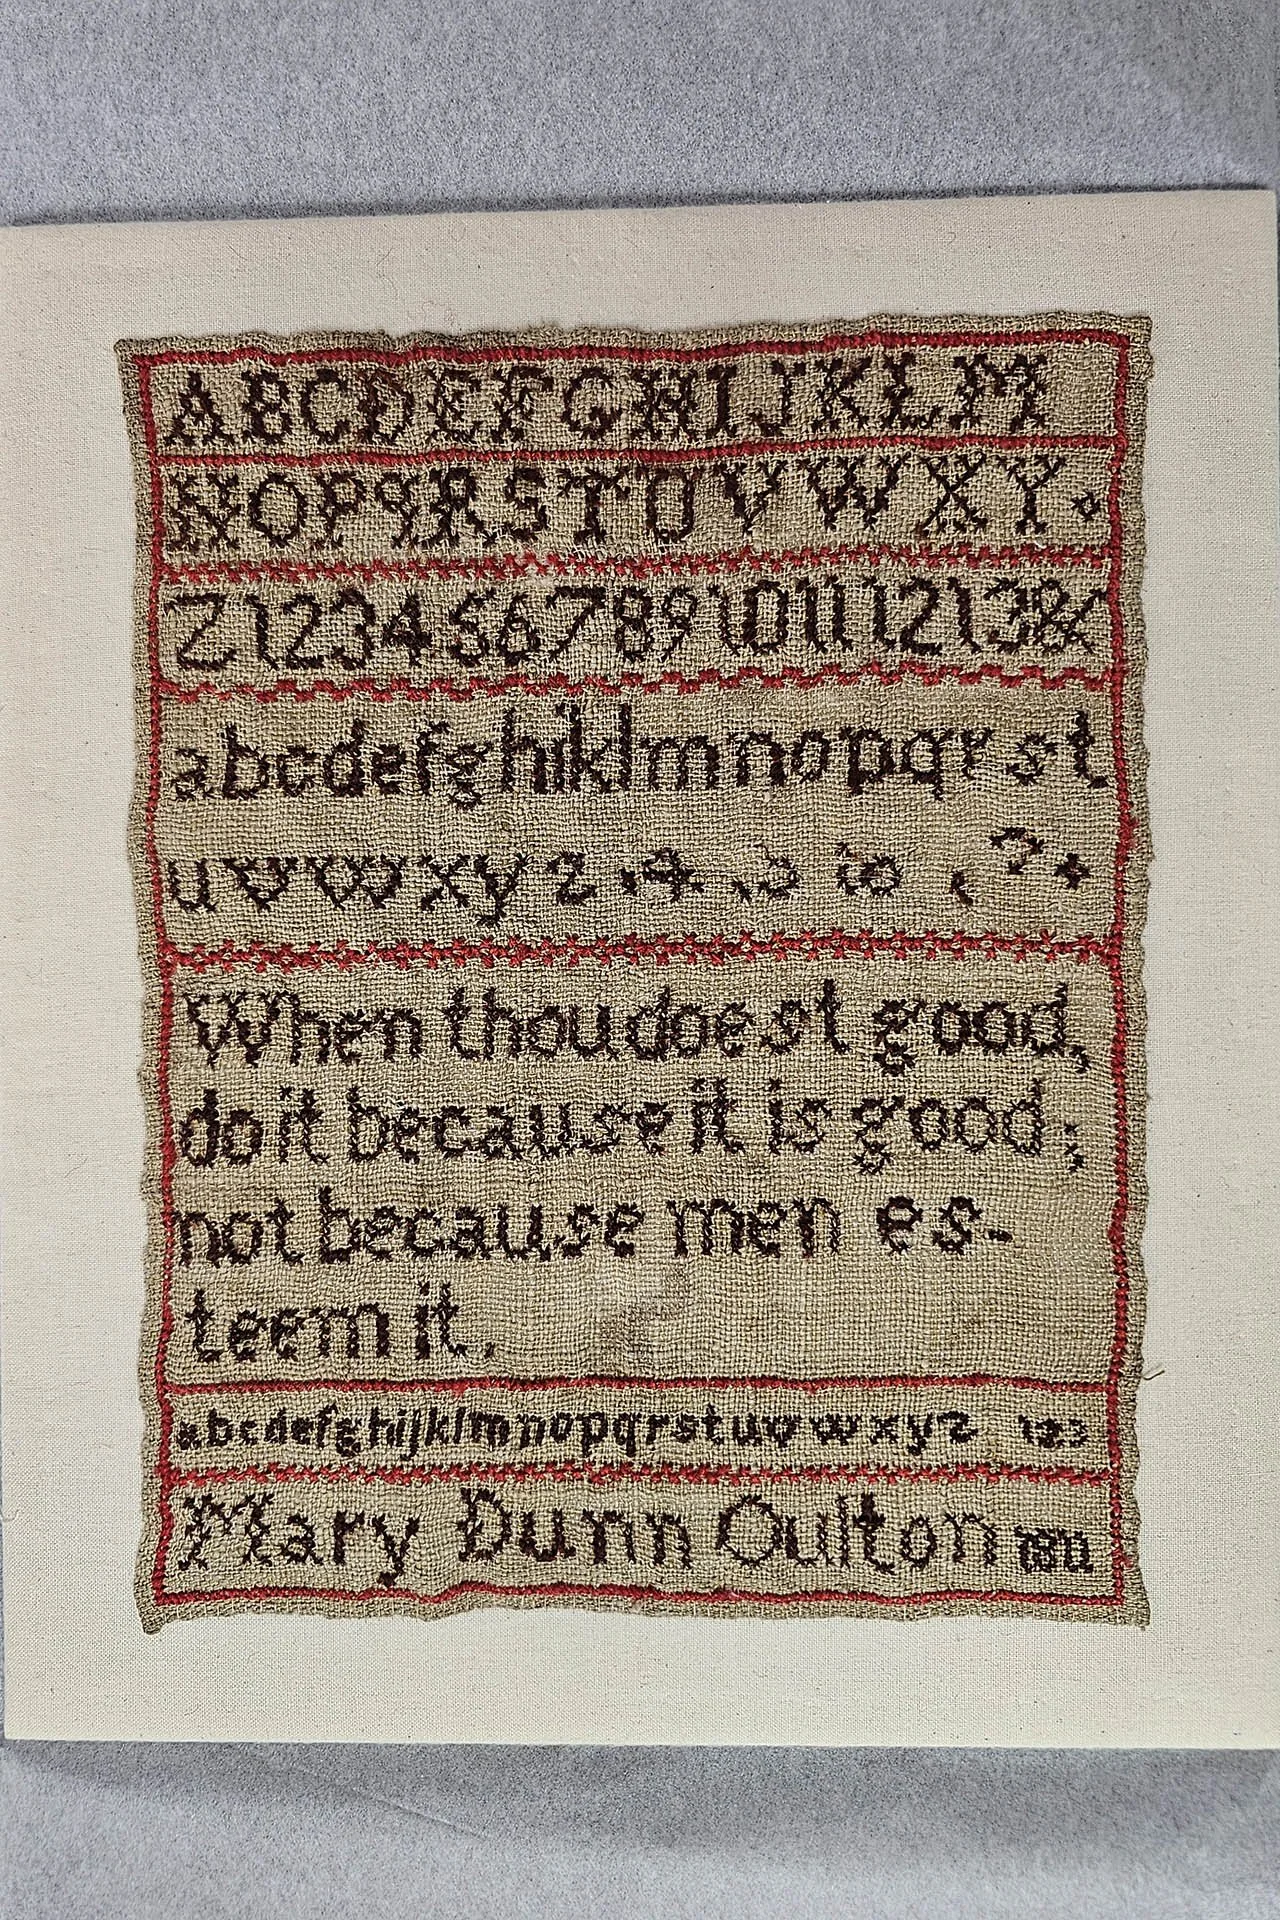 ABCDEFGHIJKLM
NOPQRSTUVWXY
Z12345678910111213&
abcdefghiklmnopqrst
uvwxyz
When thou doest good,
do it because it is good;
not because men es-
teem it.
abcdefghijklmnopqrstuvwxyz 123
Mary Dunn Oulton